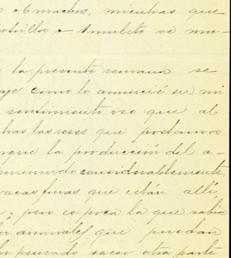 o 6 machos, mientras que
potrillo e 1 mulito se mu-
la presente semana se
como lo anuncié en mi
sentimiento veo que al
las reses que podamos
que la producción del a-
considerablemente
vacas finas que están allí
pero es poca la que
que puedan
pensado sacar otra parte